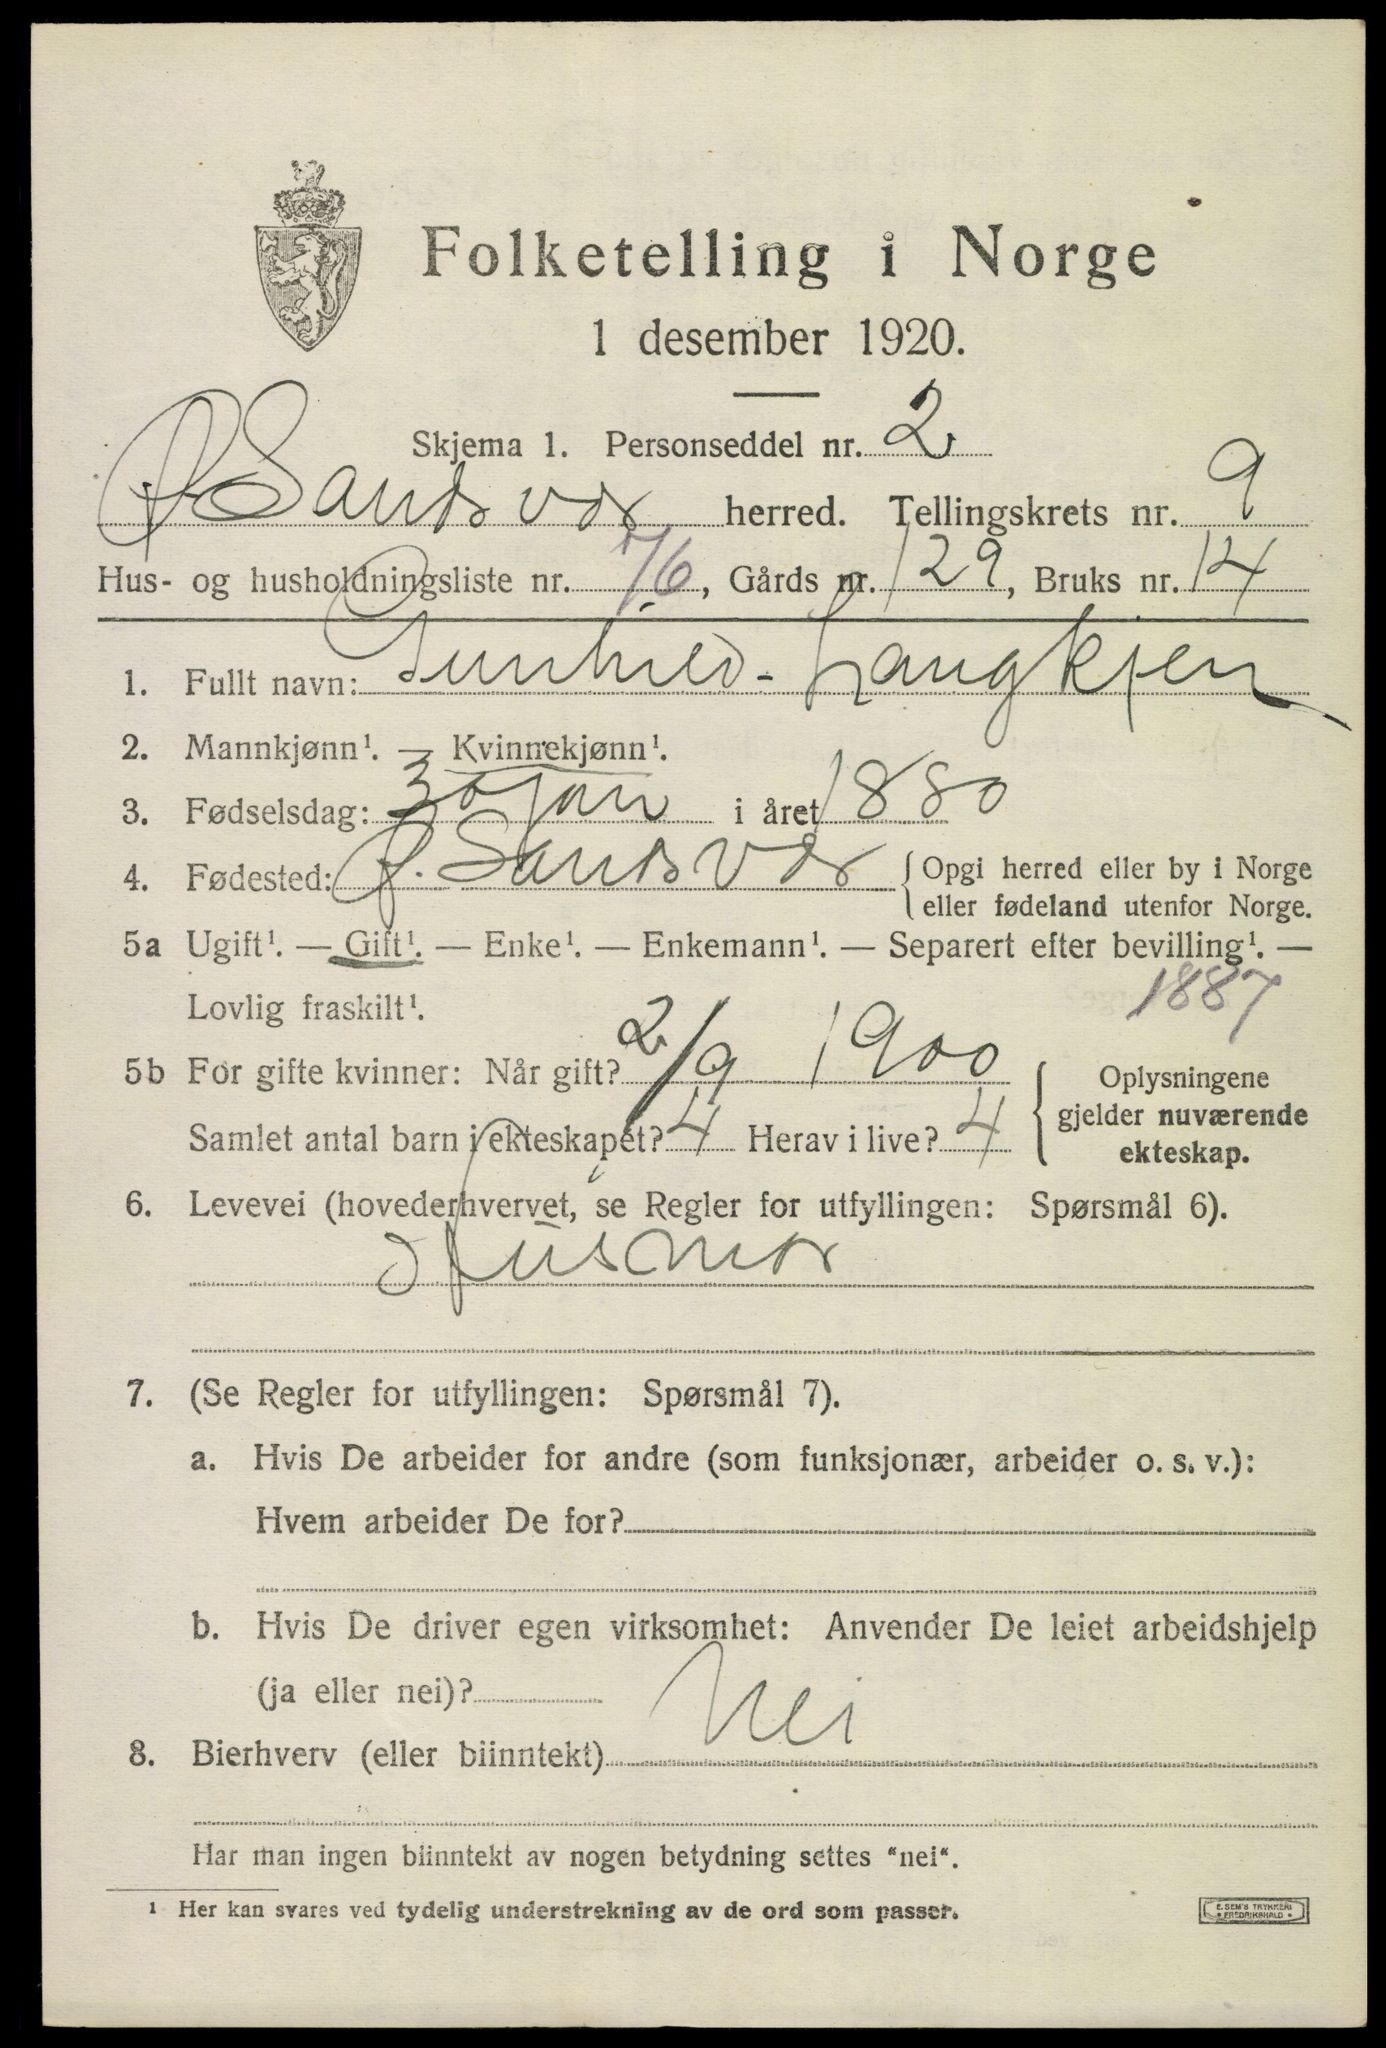 Folketelling i Norge
1 desember 1920.
Skjema 1. Personseddel nr. 2
Ø Sandsvær herred. Tellingskrets nr. 9
Hus- og husholdningsliste nr. 76, Gårds nr. 129, Bruks nr. 14
1. Fullt navn: Gunhild Langkjen
2. Mannkjønn¹. — Kvinnekjønn¹.
3. Fødselsdag: 30 jan i året 1880
4. Fødested: Ø. Sandsvær { Opgi herred eller by i Norge
eller fødeland utenfor Norge.
5a Ugift¹. — Gift¹. — Enke¹. — Enkemann¹. — Separert efter bevilling¹. —
Lovlig fraskilt¹. 1887
5b For gifte kvinner: Når gift? 2/9 1900 { Oplysningene
gjelder nuværende
ekteskap.
Samlet antal barn i ekteskapet? 4 Herav i live? 4
6. Levevei (hovederhvervet, se Regler for utfyllingen: Spørsmål 6).
Husmor
7. (Se Regler for utfyllingen: Spørsmål 7).
a. Hvis De arbeider for andre (som funksjonær, arbeider o. s. v.):
Hvem arbeider De for?
b. Hvis De driver egen virksomhet: Anvender De leiet arbeidshjelp
(ja eller nei)?
8. Bierhverv (eller biinntekt) Nei
Har man ingen biinntekt av nogen betydning settes "nei".
¹ Her kan svares ved tydelig understrekning av de ord som passer.
E. SEM'S TRYKKERI
FREDRIKSHALD